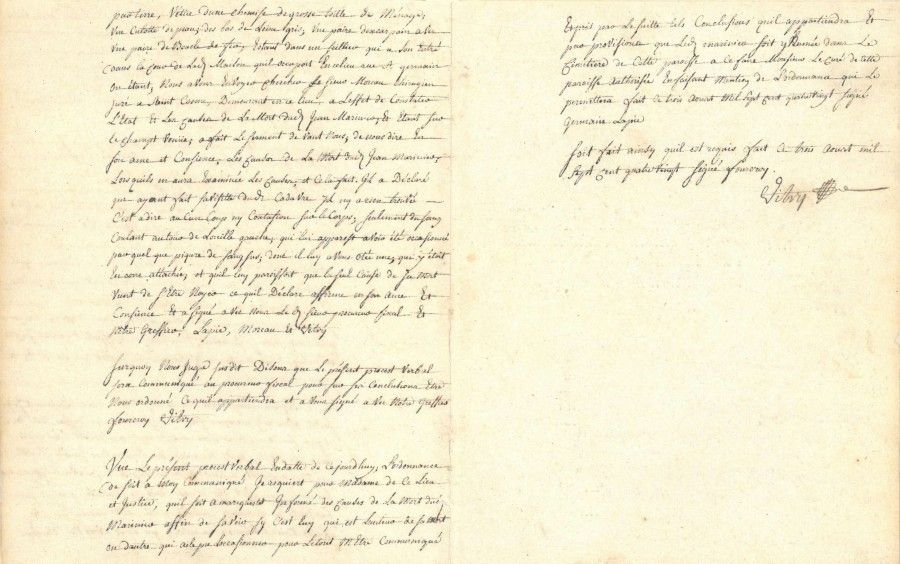 par terre, Vettu d'une chemise de grosse toille de Ménage,
Une Culotte de peau, des bas de Laine gris, une paire
une paire de Boucle de fer, Estant dans un sellier qui a son Entré
dans la Cour de Led. Maison quil occupoit En celieu rue St germain
ou étant, Nous avons Envoyé chercher Le sieur Moreau chirurgien
juré a Saint Cosme, Demeurant en ce Lieu, a L'effet de Constater
L'état Et Les causes de La Mort dud. Jean Marinier, Et Etant sur
le champt Venue, a fait Le serment de vant Nous, de nous dire En
son ame et Consience, Les Causes de La Mort dud. Jean Marinier,
Lorsquils en aura Examinée Les Causes, et Cela fait. Il a Déclaré
que ayant fait La visitte du d. Cadavre Il ny a rien trouvée
C'est a dire aucun Coup ny Contusion sur le Corps, seulement du sang
Coulant au tour de Loreille gauche, qui lui apparoit avoir été occasionné
par quel que piqure de sang sus, dont il luy a Vous otée une, qui y étoit
En core attachée, et quil luy paroissoit que la seul Cause de sa Mort
vient de s'Etre Noyée ce quil Déclare affirme en son ame Et
Consience Et a signé a vec Nous Le d. sieur procureur fiscal Et
Notre Greffier, Lapie, Moreau et Vitry

Surquoy Nous Juge susdit Disons que Le présent procest Verbal
sera Communiqué au procureur fiscal pour sur ses Conclusions Etre
Nous ordonné Ce quil appartiendra et avons signé a vec Notre Greffier
fourcroy Vitry

Vue Le présent procest Verbal En datte de cejourdhuy, L'ordonnance
de soit a Moy Communiqué Je requiert pour Madame de Ce Lieu
et Justice, quil soit a ma requeste Informé des causes de La Mort dud.
Marinier affin de savoir sy C'est luy qui est Lauteur de sa mort
ou dautre qui aulepu Loccasionner pour Letout M Etre Communiqué

Et pris par La suitte tels Conclusions quil appartiendra Et
par provisions que Led. marinier soit ynhumée dans Le
Cimetiere de Cette paroisse a ce faire Monsieur Le Curé de cette
paroisse authorisé En faisant Mention de Lordonnance qui Le
permettera fait ce trois aoust Mil Sept Cent quatre vingt signé
Germain Lapie

Soit fait ainsy quil est requis fait ce trois aoust mil
sept cent quatrevingt signé fourcroy.
Vitry